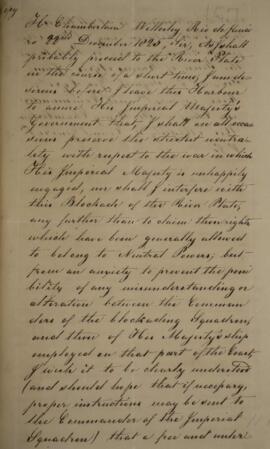 Mr Chamberlain Wellesley Rio de Janei
ro 22nd December 1825. Sir, As I shall
probably proceed to the River Plate
in the course of a short time, I am de
sirous before I leave this Harbour
to assure His Imperial Majesty's
Government that I shall on all occa
sions preserve the strictest neutra
lity with respect to the war in which
His Imperial Majesty is unhappily
engaged, nor shall I interfere with
this Blockade of the River Plate,
any further than to claim those rights
which have been generally allowed
to belong to Neutral Powers; but
from an anxiety to prevent the possi
bility of any misunderstanding or
altercation between the Comman
ders of the blockading Squadron,
and those of His Majesty's ship
employed on that part of the Coast,
I wish it to be clearly understood
(and should hope that if necessary,
proper instructions may be sent to
the Commander of the Imperial
Squadron) that a free and unde